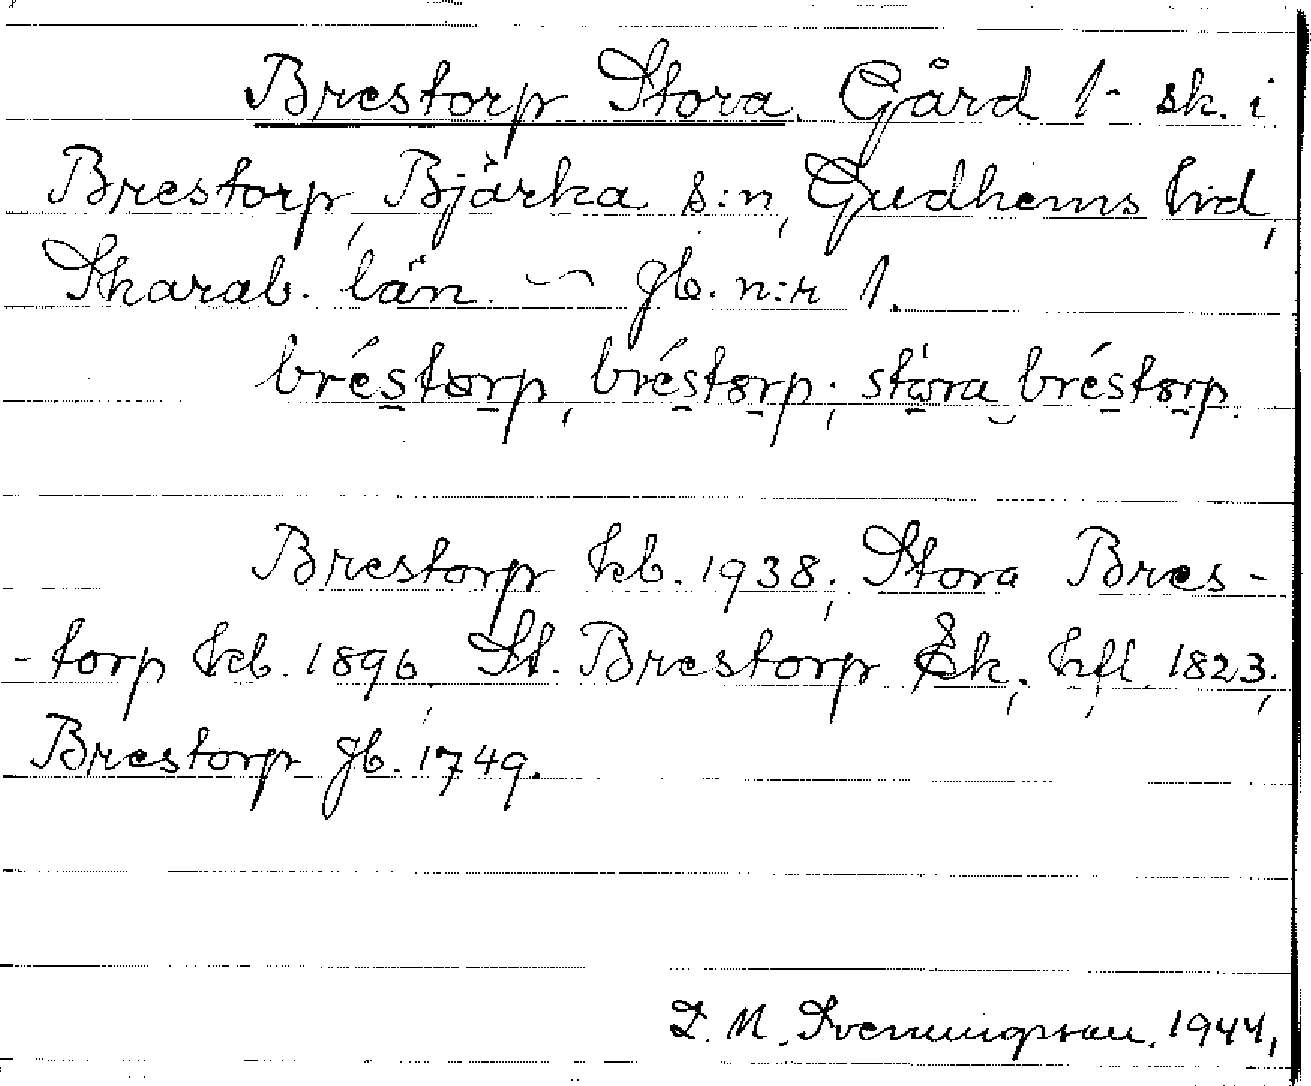 Brestorp Stora. Gård 1 sk. i
Brestorp, Bjärka s:n, Gudhems hd,
Skarab. län. — gb. n:r 1.
bréstorp, bréstorp; stora bréstorp.
Brestorp kb. 1938; Stora Bres-
-torp kb. 1896, St. Brestorp Ek; hfl 1823;
Brestorp gb. 1749.
M. Svenningsson. 1944.